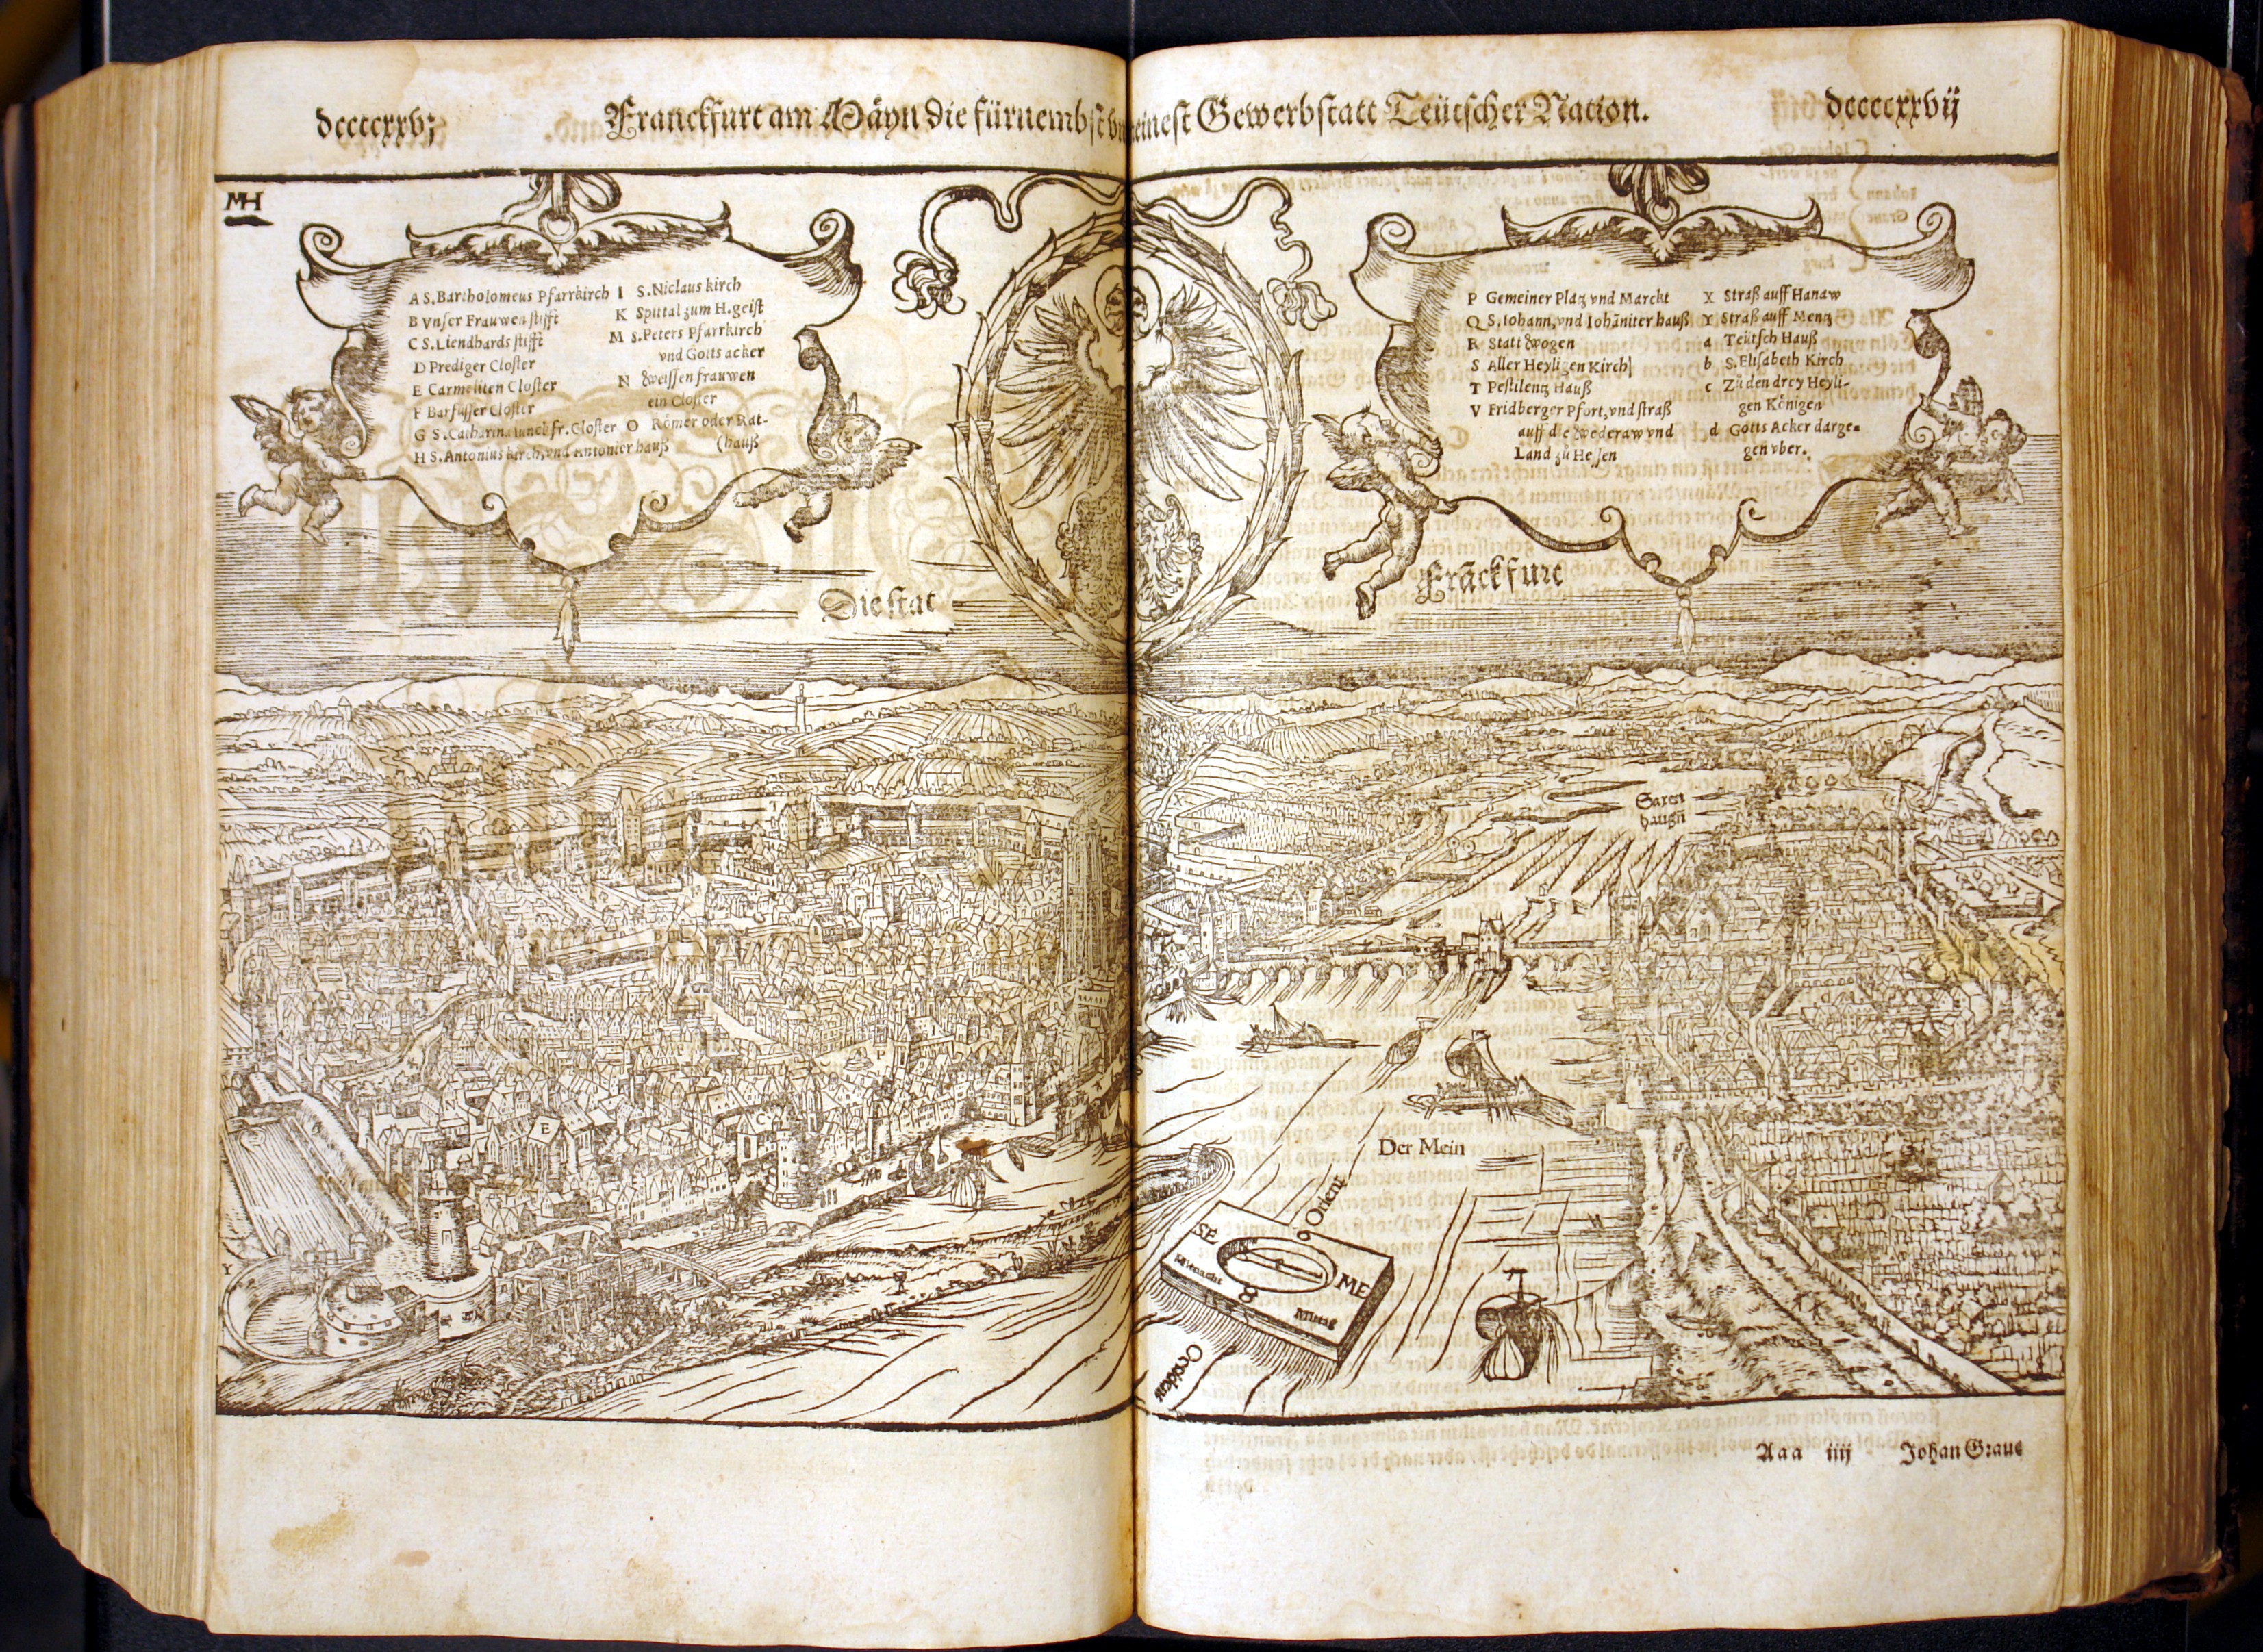 dccccxxvj
Franckfurt am Mäyn die fürnembst einest Gewerbstatt Teütscher Nation.
dccccxxvij
MH
A S. Bartholomeus Pfarrkirch
B Vnser Frauwen stifft
C S. Liendhards stifft
D Prediger Closter
E Carmeliten Closter
F Barfüsser Closter
G S. Catharina Junckfr. Closter
H S. Antonius kirch, vnd Antonier hauß
I S. Niclaus kirch
K Spittal zum H. geist
M S. Peters Pfarrkirch
vnd Gotts acker
N Weissen frauwen
ein Closter
O Römer oder Rat-
(hauß
P Gemeiner Platz vnd Marckt
Q S. Iohann, vnd Iohāniter hauß
R Statt Wogen
S Aller Heyligen Kirch
T Pestilentz Hauß
V Fridberger Pfort, vnd straß
auff die Wederaw vnd
Land zů Hessen
X Straß auff Hanaw
Y Straß auff Mentz
a Teütsch Hauß
b S. Elisabeth Kirch
c Zů den drey Heyli-
gen Königen
d Gotts Acker darge-
gen vber.
Die stat
Frāckfurt
Saxen
haugn
Der Mein
Orient
SE
ME
Mitnacht
Mittag
Occident
Aaa iiij
Johan Graue